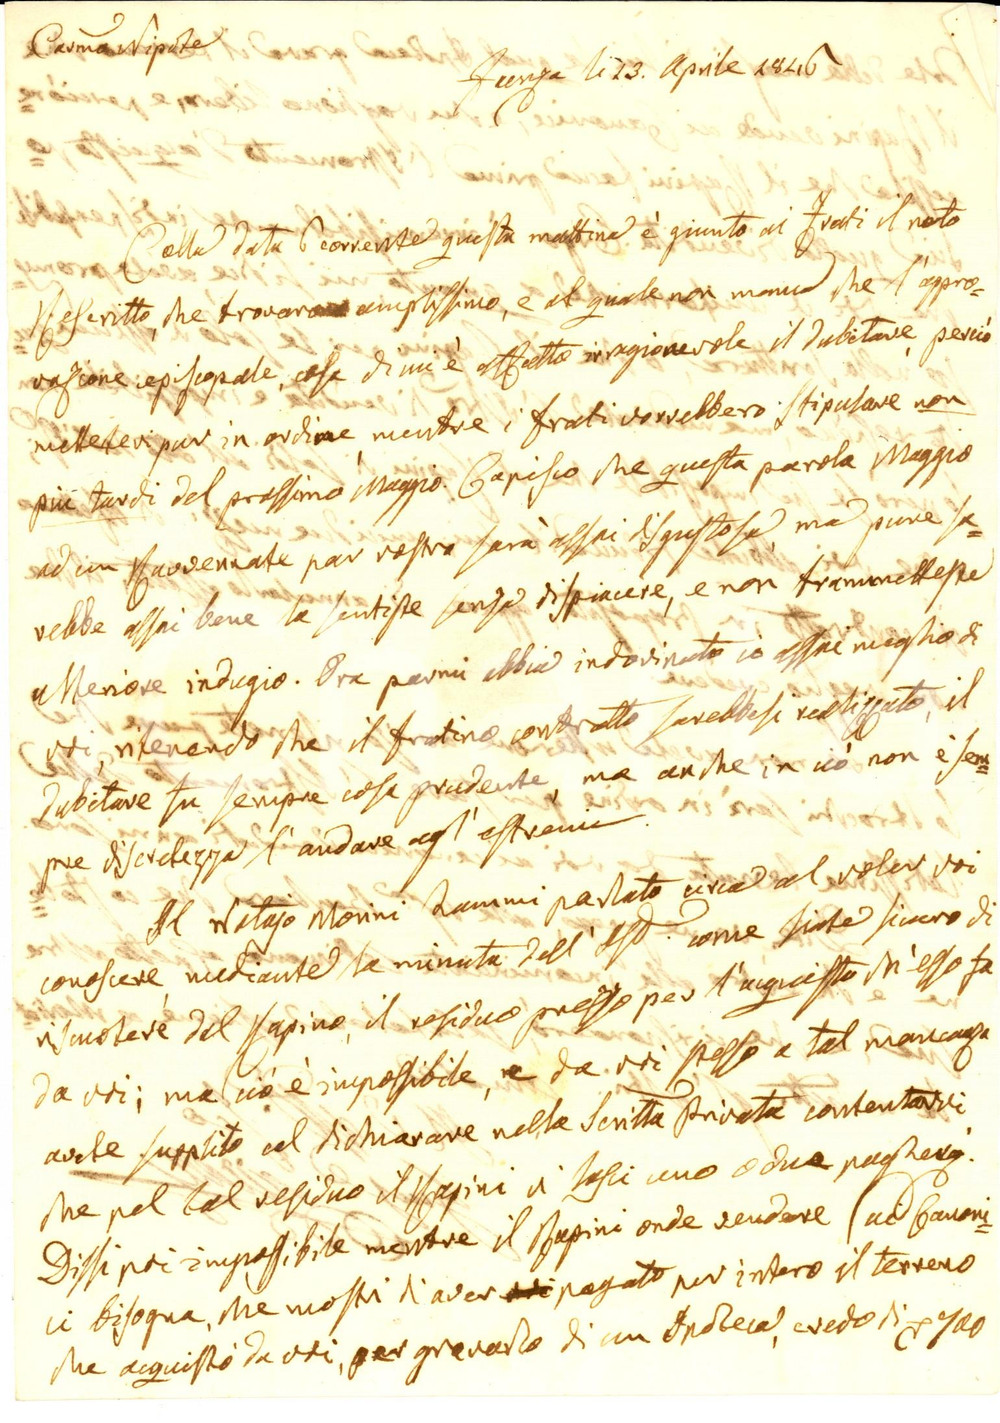 Carma Nipote
Faenza li 23. Aprile 1846
Colla data 6 corrente questa mattina è giunto ai Frati il noto
Rescritto, che trovarono amplissimo, e al quale non manca che l'appro=
vazione episcopale, cosa di cui è affatto irragionevole il dubitare, perciò
mettetevi pur in ordine, mentre i frati vorrebbero stipulare non
più tardi del prossimo Maggio. Capisco che questa parola Maggio
ad un par vostro sarà assai disgustosa, ma pure sa=
rebbe assai bene la sentiste senza dispiacere, e non frammetteste
ulteriore indugio. Ora parmi abbia indovinato io assai meglio di
voi, ritenendo che il fratino contratto sarebbesi realizzato, il
dubitare fu sempre cosa prudente, ma anche in ciò non è sem=
pre discretezza l'andare agl'estremi.
Il Notajo Morini hammi parlato circa al voler voi
conoscere mediante la minuta dell' come siate sicuro di
riscuotere dal Papini, il residuo prezzo per l'acquisto ch'esso fa
da voi; ma ciò è impossibile, e da voi stesso a tal mancanza
avete supplito col dichiarare nella Scritta Privata contentarvi
che pel tal residuo il Papini vi lasci uno o due pagherò.
Dissi poi impossibile mentre il Papini onde vendere (ai Canoni=
ci bisogna, che mostri di aver pagato per intero il terreno
che acquistò da voi, per gravarlo di un Ipoteca, credo di 700